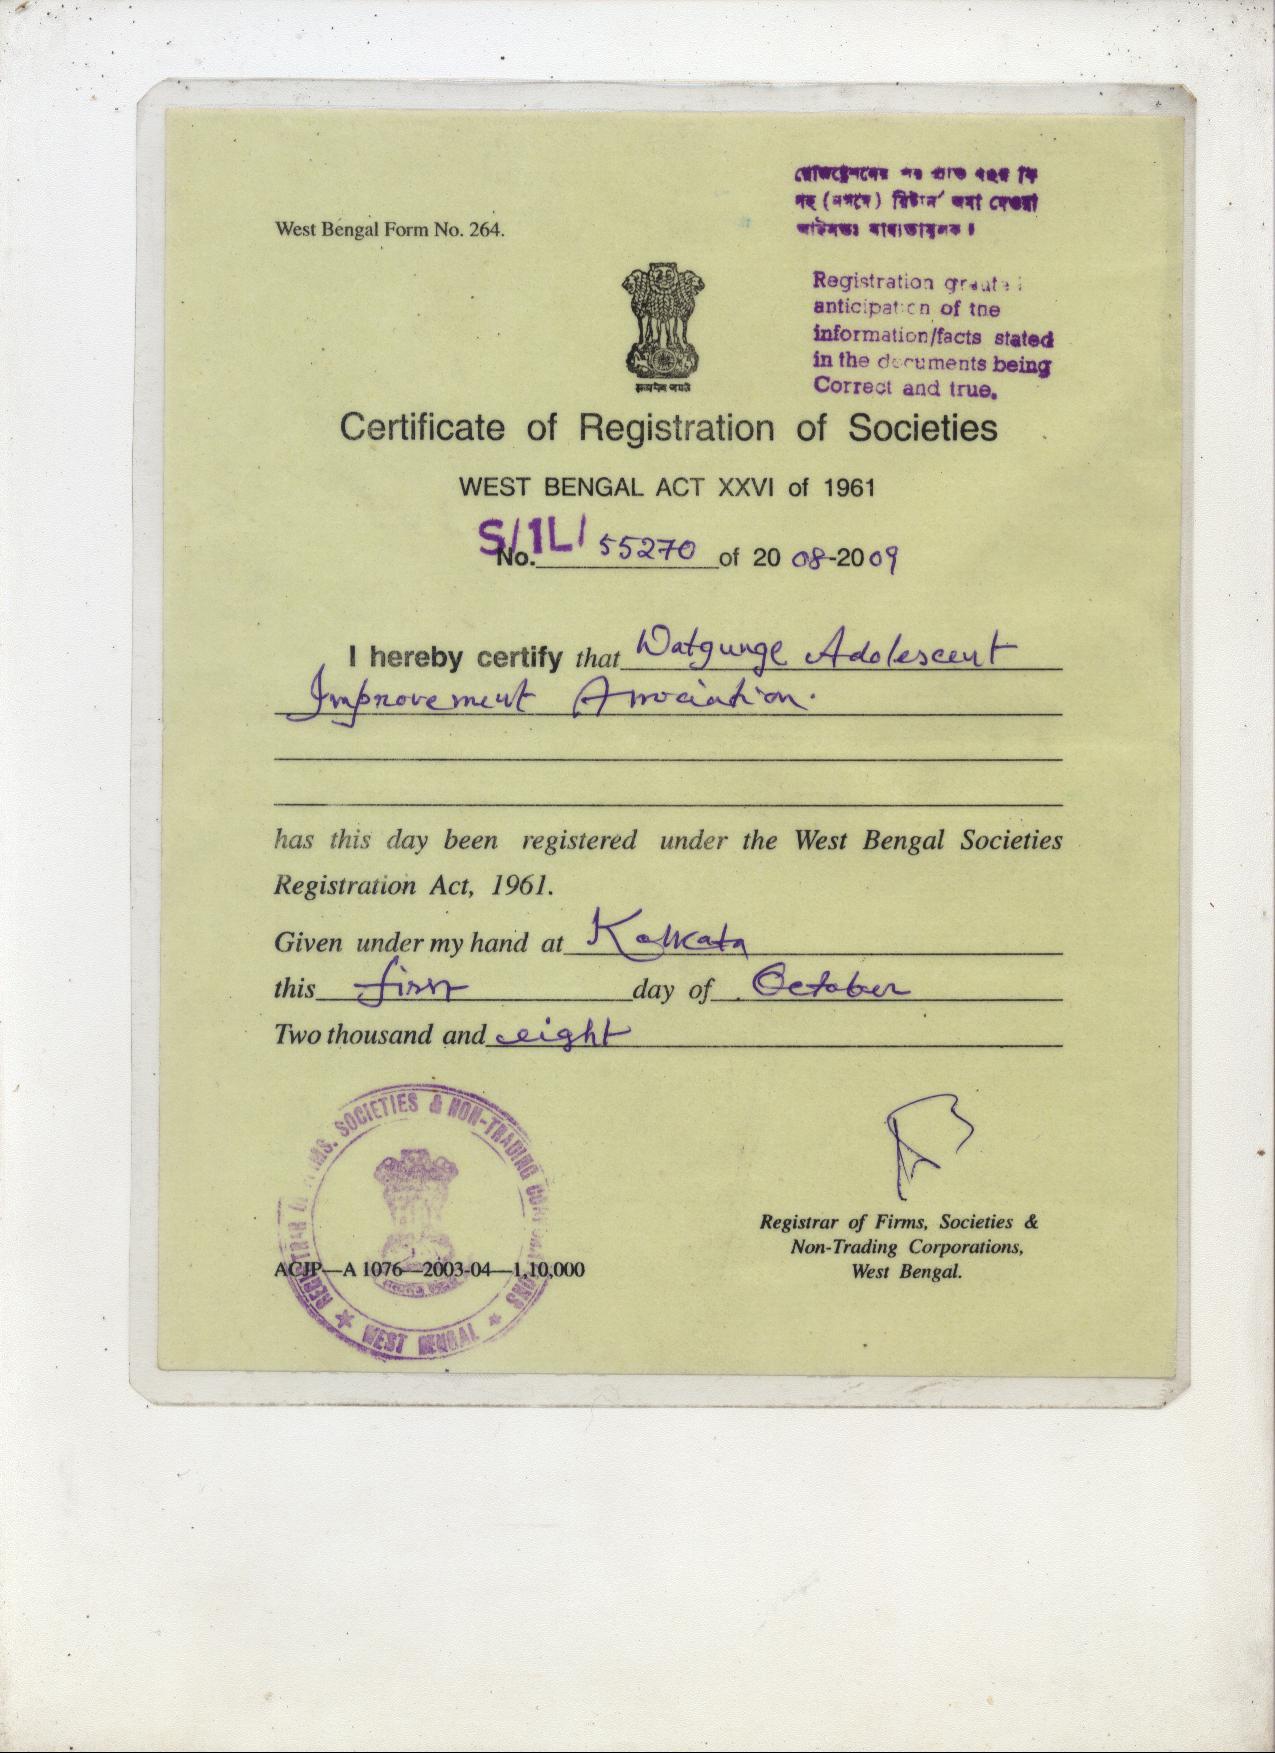 রেজিস্ট্রেশনের পর প্রতি বছর ফি
সহ (নগদে) রিটার্ন জমা দেওয়া
আইনতঃ বাধ্যতামূলক।
West Bengal Form No. 264.
Registration
anticipation of the
information/facts stated
in the documents being
Correct and true.
सत्यमेव जयते
Certificate of Registration of Societies
WEST BENGAL ACT XXVI of 1961
S/1L/
No. 55270 of 20 08-2009
I hereby certify that Watgunge Adolescent
Improvement Association.
has this day been registered under the West Bengal Societies
Registration Act, 1961.
Given under my hand at Kolkata
this first day of October
Two thousand and eight
REGISTRAR OF FIRMS, SOCIETIES & NON-TRADING CORPORATIONS
WEST BENGAL
Registrar of Firms, Societies &
Non-Trading Corporations,
West Bengal.
ACJP—A 1076—2003-04—1,10,000